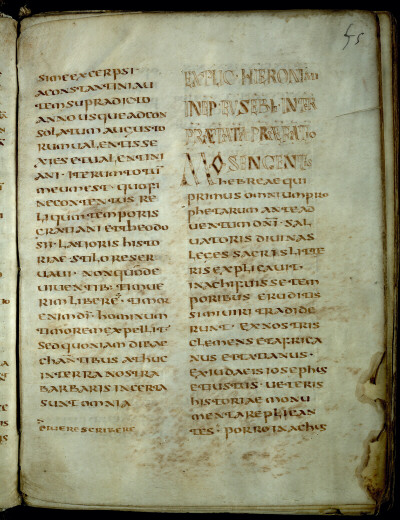 SIME EXCERPSI·
A CONSTANTINI AU
TEM SUPRADICTO
ANNO USQUE AD CON
SOLATUM AUGUSTO
RUM UALENTIS SE
XIES ET UALENTINI
ANI· ITERUM TOTŪ
MEUM EST· QUO FI
NE CONTENTUS RE
LIQUM TEMPORIS
GRATIANI ET THEODO
SII· LATIORIS HISTO
RIAE· STILO RESER
UAUI· NON QUO DE
UIUENTIB· TIMUE
RIM LIBERE· TIMOR
ENIM DI· HOMINUM
TIMOREM EXPELLIT·
SED QUONIAM DIBAC
CHANTIBUS ATHUC
IN TERRA NOSTRA
BARBARIS INCERTA
SUNT OMNIA
45
EXPLIC· HIERONIMI
INCIP· EUSEBI· INTER
PRAETATA PRAEFATIO
MOSEN GENTIS
HEBREAE QUI
PRIMUS OMNIUM PRO
PHETARUM ANTE AD
UENTUM DNI· SAL
UATORIS DIUINAS
LEGES SACRIS LITTE
RIS EXPLICAUIT·
INACHI FUISSE TEM
PORIBUS ERUDITIS
SIMI UIRI TRADIDE
RUNT· EX NOSTRIS
CLEMENS ET AFRICA
NUS ET TATIANUS·
EX IUDAEIS IOSEPHUS
ET IUSTUS· UETERIS
HISTORIAE MONU
MENTA REPLICAN
TES· PORRO INACHIS